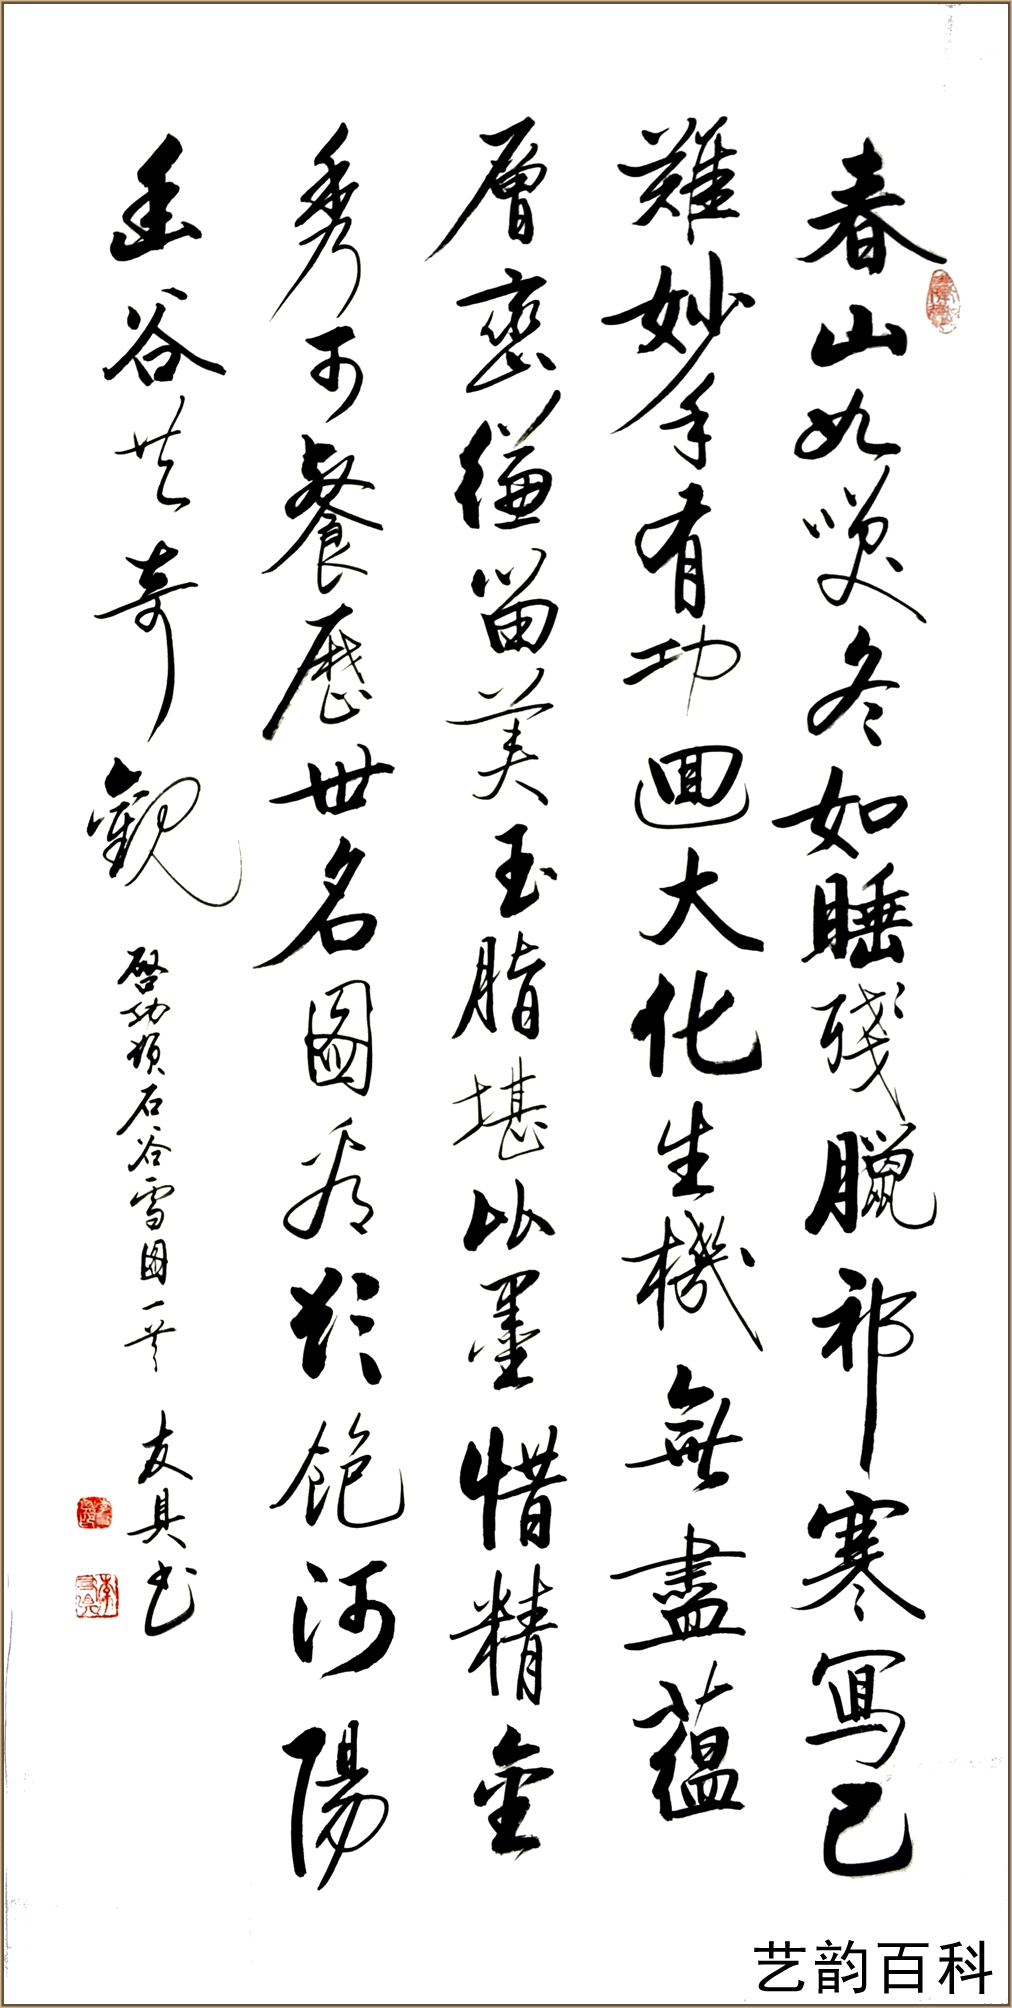 春山如笑冬如睡殘臘祁寒寫已
難妙手有功迴大化生機無盡蘊
層巒縑留美玉脂堪比墨惜精金
秀可餐歷世名圖看欲飽河陽
幽谷共奇觀
啓功題石谷雪圖一首
友具书
艺韵百科